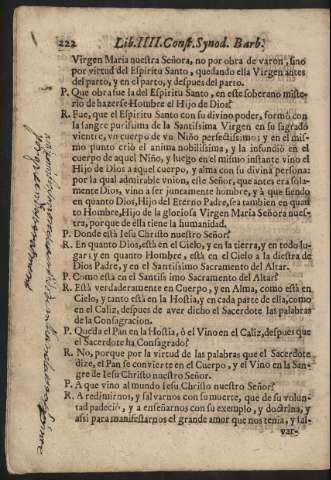 222 Lib. IIII. Const. Synod. Barb.
Virgen Maria nuestra Señora, no por obra de varon, sino
por virtud del Espiritu Santo, quedando ella Virgen antes
del parto, y en el parto, y despues del parto.
P. Que obra fue la del Espiritu Santo, en este soberano miste-
rio de hazerse Hombre el Hijo de Dios?
R. Fue, que el Espiritu Santo con su divino poder, formò con
la sangre purissima de la Santissima Virgen en su sagrado
vientre, vn cuerpo de vn Niño perfectissimo; y en el mis-
mo punto criò el anima nobilissima, y la infundiò en el
cuerpo de aquel Niño, y luego en el mismo instante vino el
Hijo de Dios a aquel cuerpo, y alma con su divina persona:
por la qual admirable vnion, esse Señor, que antes era sola-
mente Dios, vino a ser juntamente hombre, y à que siendo
en quanto Dios, Hijo del Eterno Padre, sea tambien en quan
to Hombre, Hijo de la gloriosa Virgen Maria Señora nues-
tra, porque de ella tiene la humanidad.
P. Donde està Iesu Christo nuestro Señor?
R. En quanto Dios, està en el Cielo, y en la tierra, y en todo lu-
gar: y en quanto Hombre, està en el Cielo a la diestra de
Dios Padre, y en el Santissimo Sacramento del Altar.
P. Como està en el Santissimo Sacramento del Altar?
R. Està verdaderamente en Cuerpo, y en Alma, como està en
Cielo, y tanto està en la Hostia, y en cada parte de ella, como
en el Caliz, despues de aver dicho el Sacerdote las palabras
de la Consagracion.
P. Queda el Pan en la Hostia, ò el Vino en el Caliz, despues que
el Sacerdote ha Consagrado?
R. No, porque por la virtud de las palabras que el Sacerdote
dize, el Pan se convierte en el Cuerpo, y el Vino en la San-
gre de Iesu Christo nuestro Señor.
P. A que vino al mundo Iesu Christo nuestro Señor?
R. A redimirnos, y salvarnos con su muerte, que de su volun-
tad padeciò, y a enseñarnos con su exemplo, y doctrina, y
assi para manifestarnos el grande amor que nos tenia, y sal-
var-